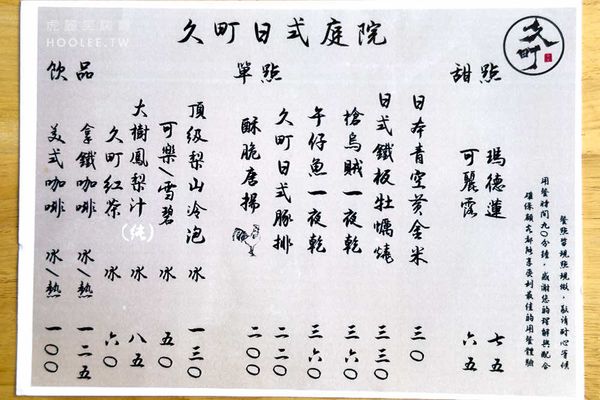 虎麗笑瞇瞇
HOOLEE.TW
久町日式庭院
久町
甜點
瑪德蓮 七五
可麗露 六五
餐點皆現點現做，敬請耐心等候
用餐時間九〇分鐘，感謝您的理解與配合
確保顧客都能享受到最佳的用餐體驗
單點
日本青空黃金米 三〇
日式鐵板牡蠣燒 三三〇
槍烏賊一夜乾 三五〇
午仔魚一夜乾 三六〇
久町日式豚排 二二〇
酥脆唐揚 二〇〇
飲品
頂級梨山冷泡 冰 一三〇
可樂/雪碧 冰 五〇
大樹鳳梨汁(純) 冰 八五
久町紅茶 冰 六〇
拿鐵咖啡 冰/熱 一二五
美式咖啡 冰/熱 一〇〇